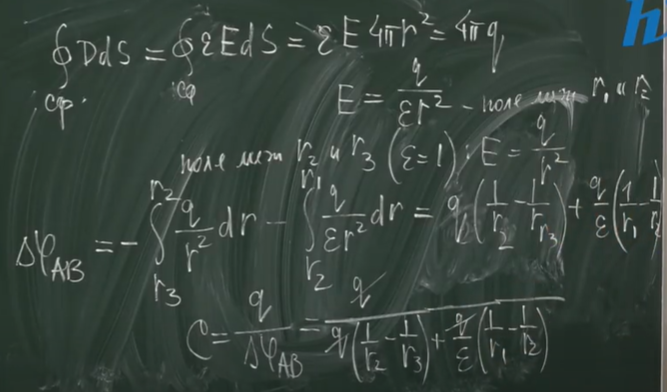 ∮ D dS = ∮ ε E dS = ε E 4πr² = 4πq
сф. сф
E = q/(εr²) – поле меж r₁ и r₂
поле меж r₂ и r₃ (ε=1): E = q/r²
Δφ_AB = – ∫_{r₃}^{r₂} q/r² dr – ∫_{r₂}^{r₁} q/(εr²) dr = q(1/r₂ – 1/r₃) + q/ε(1/r₁ – 1/r₂
C = q/Δφ_AB = q/(q(1/r₂ – 1/r₃) + q/ε(1/r₁ – 1/r₂))